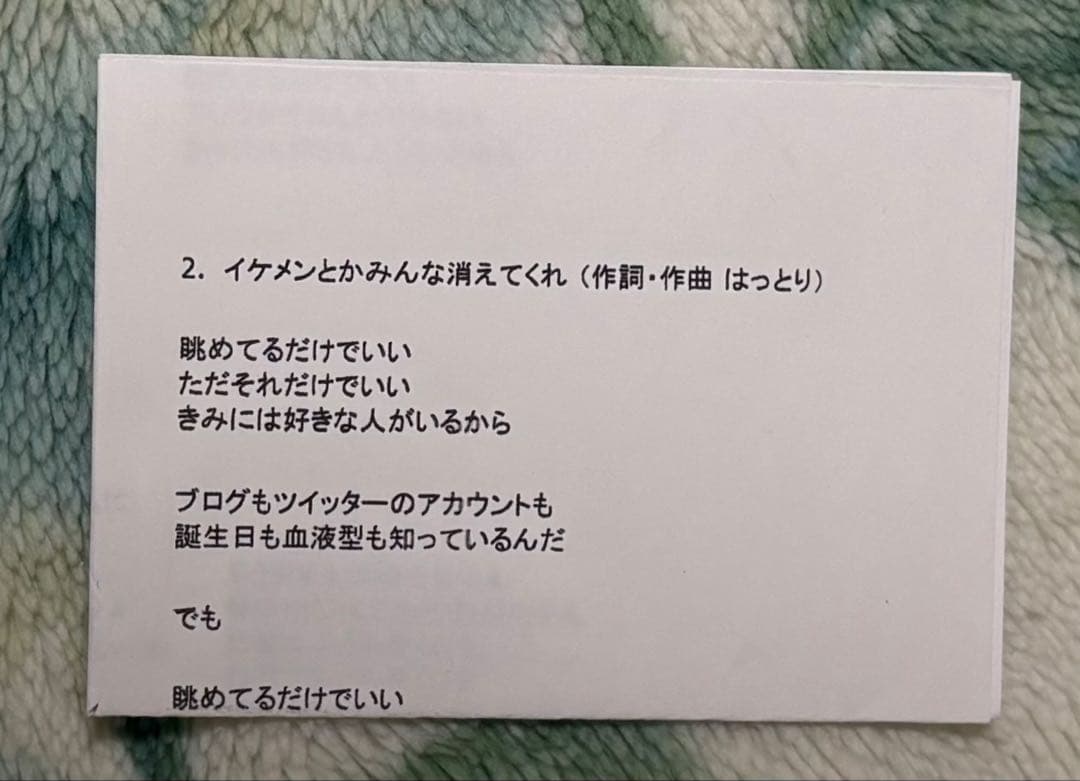 2. イケメンとかみんな消えてくれ（作詞・作曲 はっとり）
眺めてるだけでいい
ただそれだけでいい
きみには好きな人がいるから
ブログもツイッターのアカウントも
誕生日も血液型も知っているんだ
でも
眺めてるだけでいい